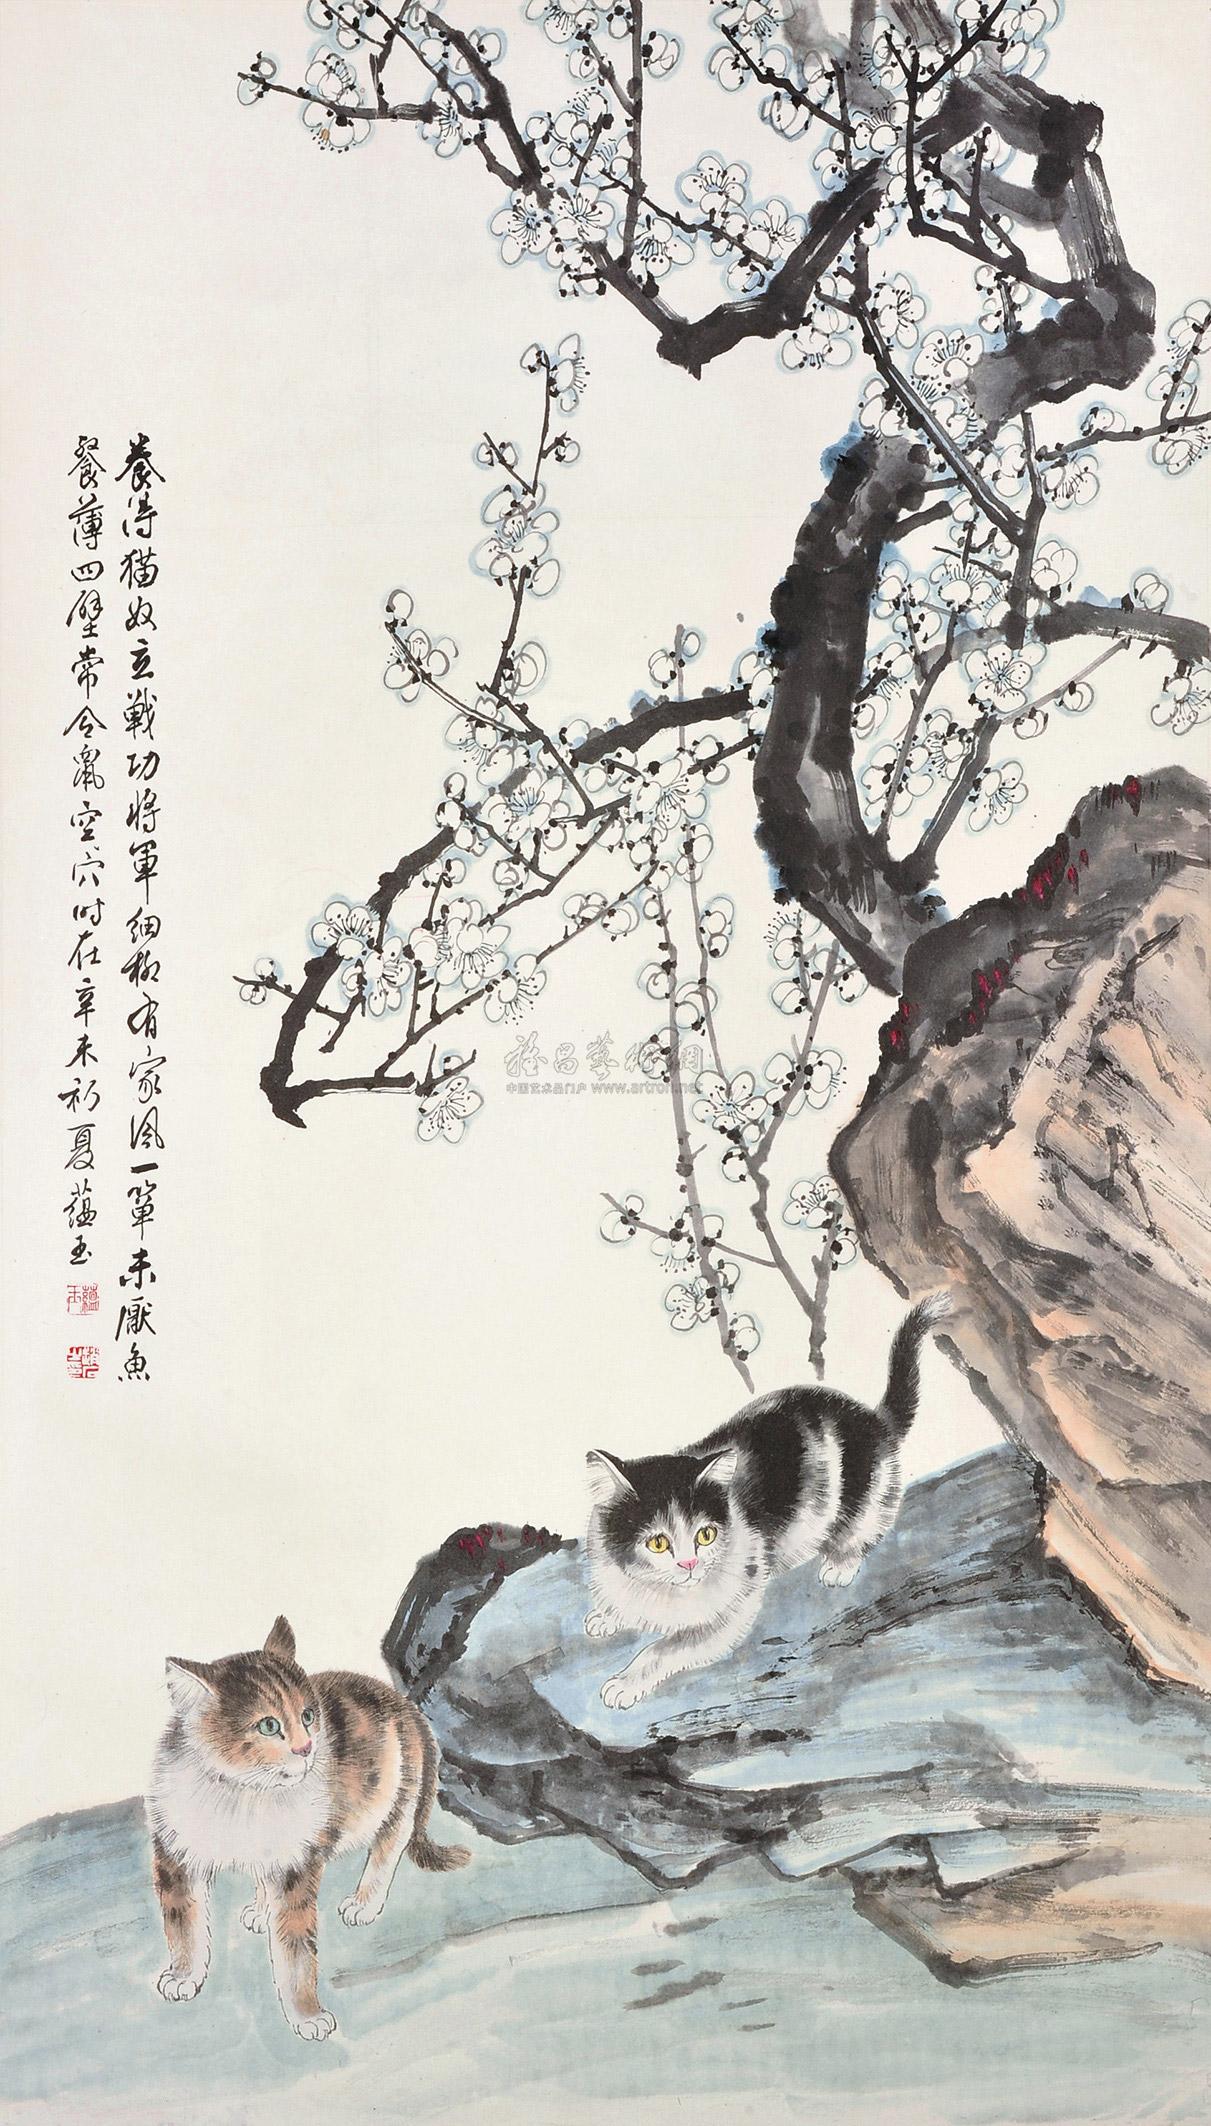 養得猫奴立戰功將軍細柳有家風一簞未厭魚
餐薄四壁常令鼠空穴时在辛未初夏蕴玉
雅昌藝術網
中国艺术品门户 www.artron.net